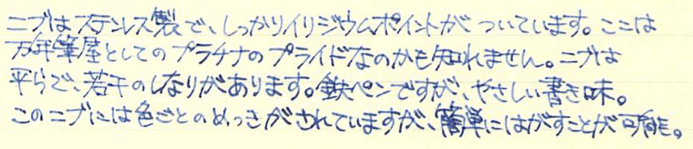 ニブはステンレス製で、しっかりイリジウムポイントがついています。ここは
万年筆屋としてのプラチナのプライドなのかも知れません。ニブは
平らで、若干のしなりがあります。鉄ペンですが、やさしい書き味。
このニブには色ごとのめっきがされていますが、簡単にはがすことが可能。